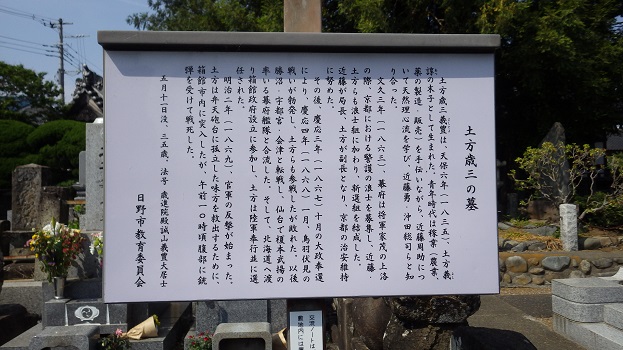 土方歳三の墓
土方歳三義豊は、天保六年（一八三五）、土方義
諄の末子として生まれた。青年時代は稼業（農業、
薬の製造・販売）を手伝いながら、近藤周助につ
いて天然理心流を学び、近藤勇、沖田総司らと知
り合った。
文久三年（一八六三）、幕府は将軍家茂の上洛
の際、京都における警護の浪士を募集し、近藤・
土方らも浪士組に加わり、新選組を結成した。
近藤が局長、土方が副長となり、京都の治安維持
に努めた。
その後、慶応三年（一八六七）十月の大政奉還
により、慶応四年（一八六八）一月、鳥羽伏見の
戦いが勃発し、土方らも参戦したが敗れた。以後
勝沼・宇都宮・会津と転戦し、仙台で榎本武揚の
率いる幕府艦隊と合流した。そして、北海道へ渡
り箱館政府設立に参加し、土方は陸軍奉行並に選
任された。
明治二年（一八六九）、官軍の反撃が始まった。
土方は弁天砲台に孤立した味方を救出するために、
箱館市内に突入したが、午前一〇時頃腹部に銃
弾を受けて戦死した。
五月十一日没、三五歳、法号 歳進院殿誠山義豊大居士
日野市教育委員会
交流ノートは